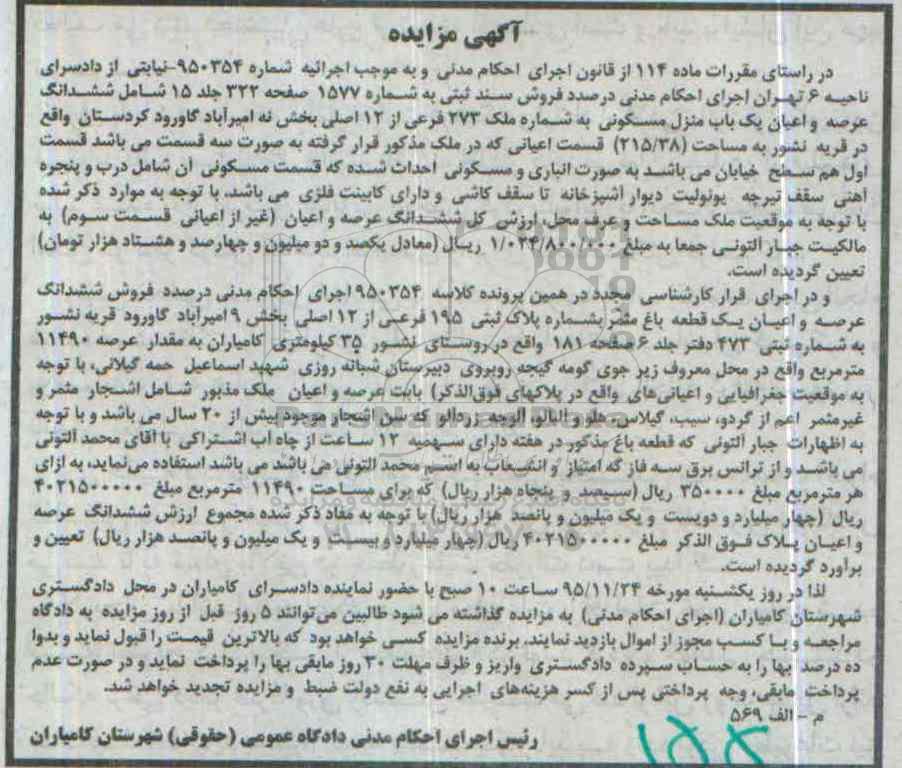 آگهی مزایده
در راستای مقررات ماده ۱۱۴ از قانون اجرای احکام مدنی و به موجب اجرائیه شماره ۹۵۰۳۵۴-نیابتی از دادسرای
ناحیه ۶ تهران اجرای احکام مدنی درصدد فروش سند ثبتی به شماره ۱۵۷۷ صفحه ۳۲۲ جلد ۱۵ شامل ششدانگ
عرصه و اعیان یک باب منزل مسکونی به شماره ملک ۲۷۳ فرعی از ۱۲ اصلی بخش نه امیرآباد گاورود کردستان واقع
در قریه نشور به مساحت (۲۱۵/۳۸) قسمت اعیانی که در ملک مذکور قرار گرفته به صورت سه قسمت می باشد قسمت
اول هم سطح خیابان می باشد به صورت انباری و مسکونی احداث شده که قسمت مسکونی آن شامل درب و پنجره
آهنی سقف تیرچه یونولیت دیوار آشپزخانه تا سقف کاشی و دارای کابینت فلزی می باشد، با توجه به موارد ذکر شده
با توجه به موقعیت ملک مساحت و عرف محل، ارزش کل ششدانگ عرصه و اعیان (غیر از اعیانی قسمت سوم) به
مالکیت جبار آلتونی جمعا به مبلغ ۱/۰۲۴/۸۰۰/۰۰۰ ریال (معادل یکصد و دو میلیون و چهارصد و هشتاد هزار تومان)
تعیین گردیده است.
و در اجرای قرار کارشناسی مجدد در همین پرونده کلاسه ۹۵۰۳۵۴ اجرای احکام مدنی درصدد فروش ششدانگ
عرصه و اعیان یک قطعه باغ مثمر بشماره پلاک ثبتی ۱۹۵ فرعی از ۱۲ اصلی بخش ۹ امیرآباد گاورود قریه نشور
به شماره ثبتی ۴۷۳ دفتر جلد ۶ صفحه ۱۸۱ واقع در روستای نشور ۳۵ کیلومتری کامیاران به مقدار عرصه ۱۱۴۹۰
مترمربع واقع در محل معروف زیر جوی گومه گیجه روبروی دبیرستان شبانه روزی شهید اسماعیل حمه گیلانی، با توجه
به موقعیت جغرافیایی و اعیانی‌های واقع در پلاکهای فوق‌الذکر) بابت عرصه و اعیان ملک مذبور شامل اشجار مثمر و
غیرمثمر اعم از گردو، سیب، گیلاس، هلو و آلبالو، آلوچه، زردآلو که سن اشجار موجود بیش از ۲۰ سال می باشد و با توجه
به اظهارات جبار آلتونی که قطعه باغ مذکور در هفته دارای سهمیه ۱۲ ساعت از چاه آب اشتراکی با آقای محمد آلتونی
می باشد و از ترانس برق سه فاز که امتیاز و انشعاب به اسم محمد آلتونی می باشد می باشد استفاده می‌نماید، به ازای
هر مترمربع مبلغ ۳۵۰۰۰۰ ریال (سیصد و پنجاه هزار ریال) که برای مساحت ۱۱۴۹۰ مترمربع مبلغ ۴۰۲۱۵۰۰۰۰۰
ریال (چهار میلیارد و دویست و یک میلیون و پانصد هزار ریال) با توجه به مفاد ذکر شده مجموع ارزش ششدانگ عرصه
و اعیان پلاک فوق الذکر مبلغ ۴۰۲۱۵۰۰۰۰۰ ریال (چهار میلیارد و بیست و یک میلیون و پانصد هزار ریال) تعیین و
برآورد گردیده است.
لذا در روز یکشنبه مورخه ۹۵/۱۱/۲۴ ساعت ۱۰ صبح با حضور نماینده دادسرای کامیاران در محل دادگستری
شهرستان کامیاران (اجرای احکام مدنی) به مزایده گذاشته می شود طالبین می‌توانند ۵ روز قبل از روز مزایده به دادگاه
مراجعه و با کسب مجوز از اموال بازدید نمایند. برنده مزایده کسی خواهد بود که بالاترین قیمت را قبول نماید و بدوا
ده درصد بها را به حساب سپرده دادگستری واریز و ظرف مهلت ۳۰ روز مابقی بها را پرداخت نماید و در صورت عدم
پرداخت مابقی، وجه پرداختی پس از کسر هزینه‌های اجرایی به نفع دولت ضبط و مزایده تجدید خواهد شد.
م - الف ۵۶۹
رئیس اجرای احکام مدنی دادگاه عمومی (حقوقی) شهرستان کامیاران